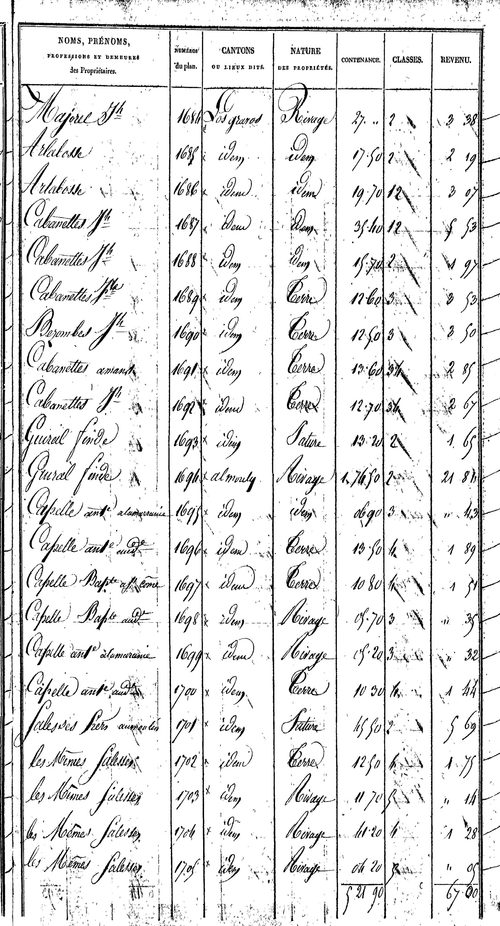 NOMS, PRÉNOMS, PROFESSIONS ET DEMEURES des Propriétaires. NUMÉROS du plan. CANTONS OU LIEUX DITS. NATURE DES PROPRIÉTÉS. CONTENANCE. CLASSES. REVENU.
Majorel Jh 1684 Les gravas Rivage 27 .. 2 3 38
Artabosse 1685 idem idem 17 50 2 2 19
Artabosse 1686 idem idem 19 70 12 3 07
Cabanettes Jh 1687 idem idem 35 40 12 5 53
Cabanettes Jh 1688 idem idem 15 70 2 1 97
Cabanettes 1689 idem Terre 12 60 3 3 53
Berombes Jh 1690 idem Terre 12 50 3 3 50
Cabanettes amans 1691 idem Terre 13 60 34 2 85
Cabanettes Jh 1692 idem Terre 12 70 34 2 67
Guiral finde 1693 idem Pature 13 20 2 1 65
Guiral finde 1694 almouly Rivage 1, 74 50 2 21 81
Capelle ante alamarinie 1695 idem idem 06 90 3 " 43
Capelle ante audt 1696 idem Terre 13 50 4 1 89
Capelle Bapte 1697 idem Terre 10 80 4 1 51
Capelle Bapte audt 1698 idem Rivage 05 70 3 " 35
Capelle ante alamarinie 1699 idem Rivage 05 20 3 " 32
Capelle ante audt 1700 idem Terre 10 30 4 1 44
Salesses frers aumoulin 1701 idem Pature 45 50 2 5 69
les Mêmes Salesses 1702 idem Terre 12 50 4 1 75
les Mêmes Salesses 1703 idem Rivage 11 70 5 " 14
les Mêmes Salesses 1704 idem Rivage 41 20 4 1 28
les Mêmes Salesses 1705 idem Rivage 04 20 5 " 05
5 21 90 67 00